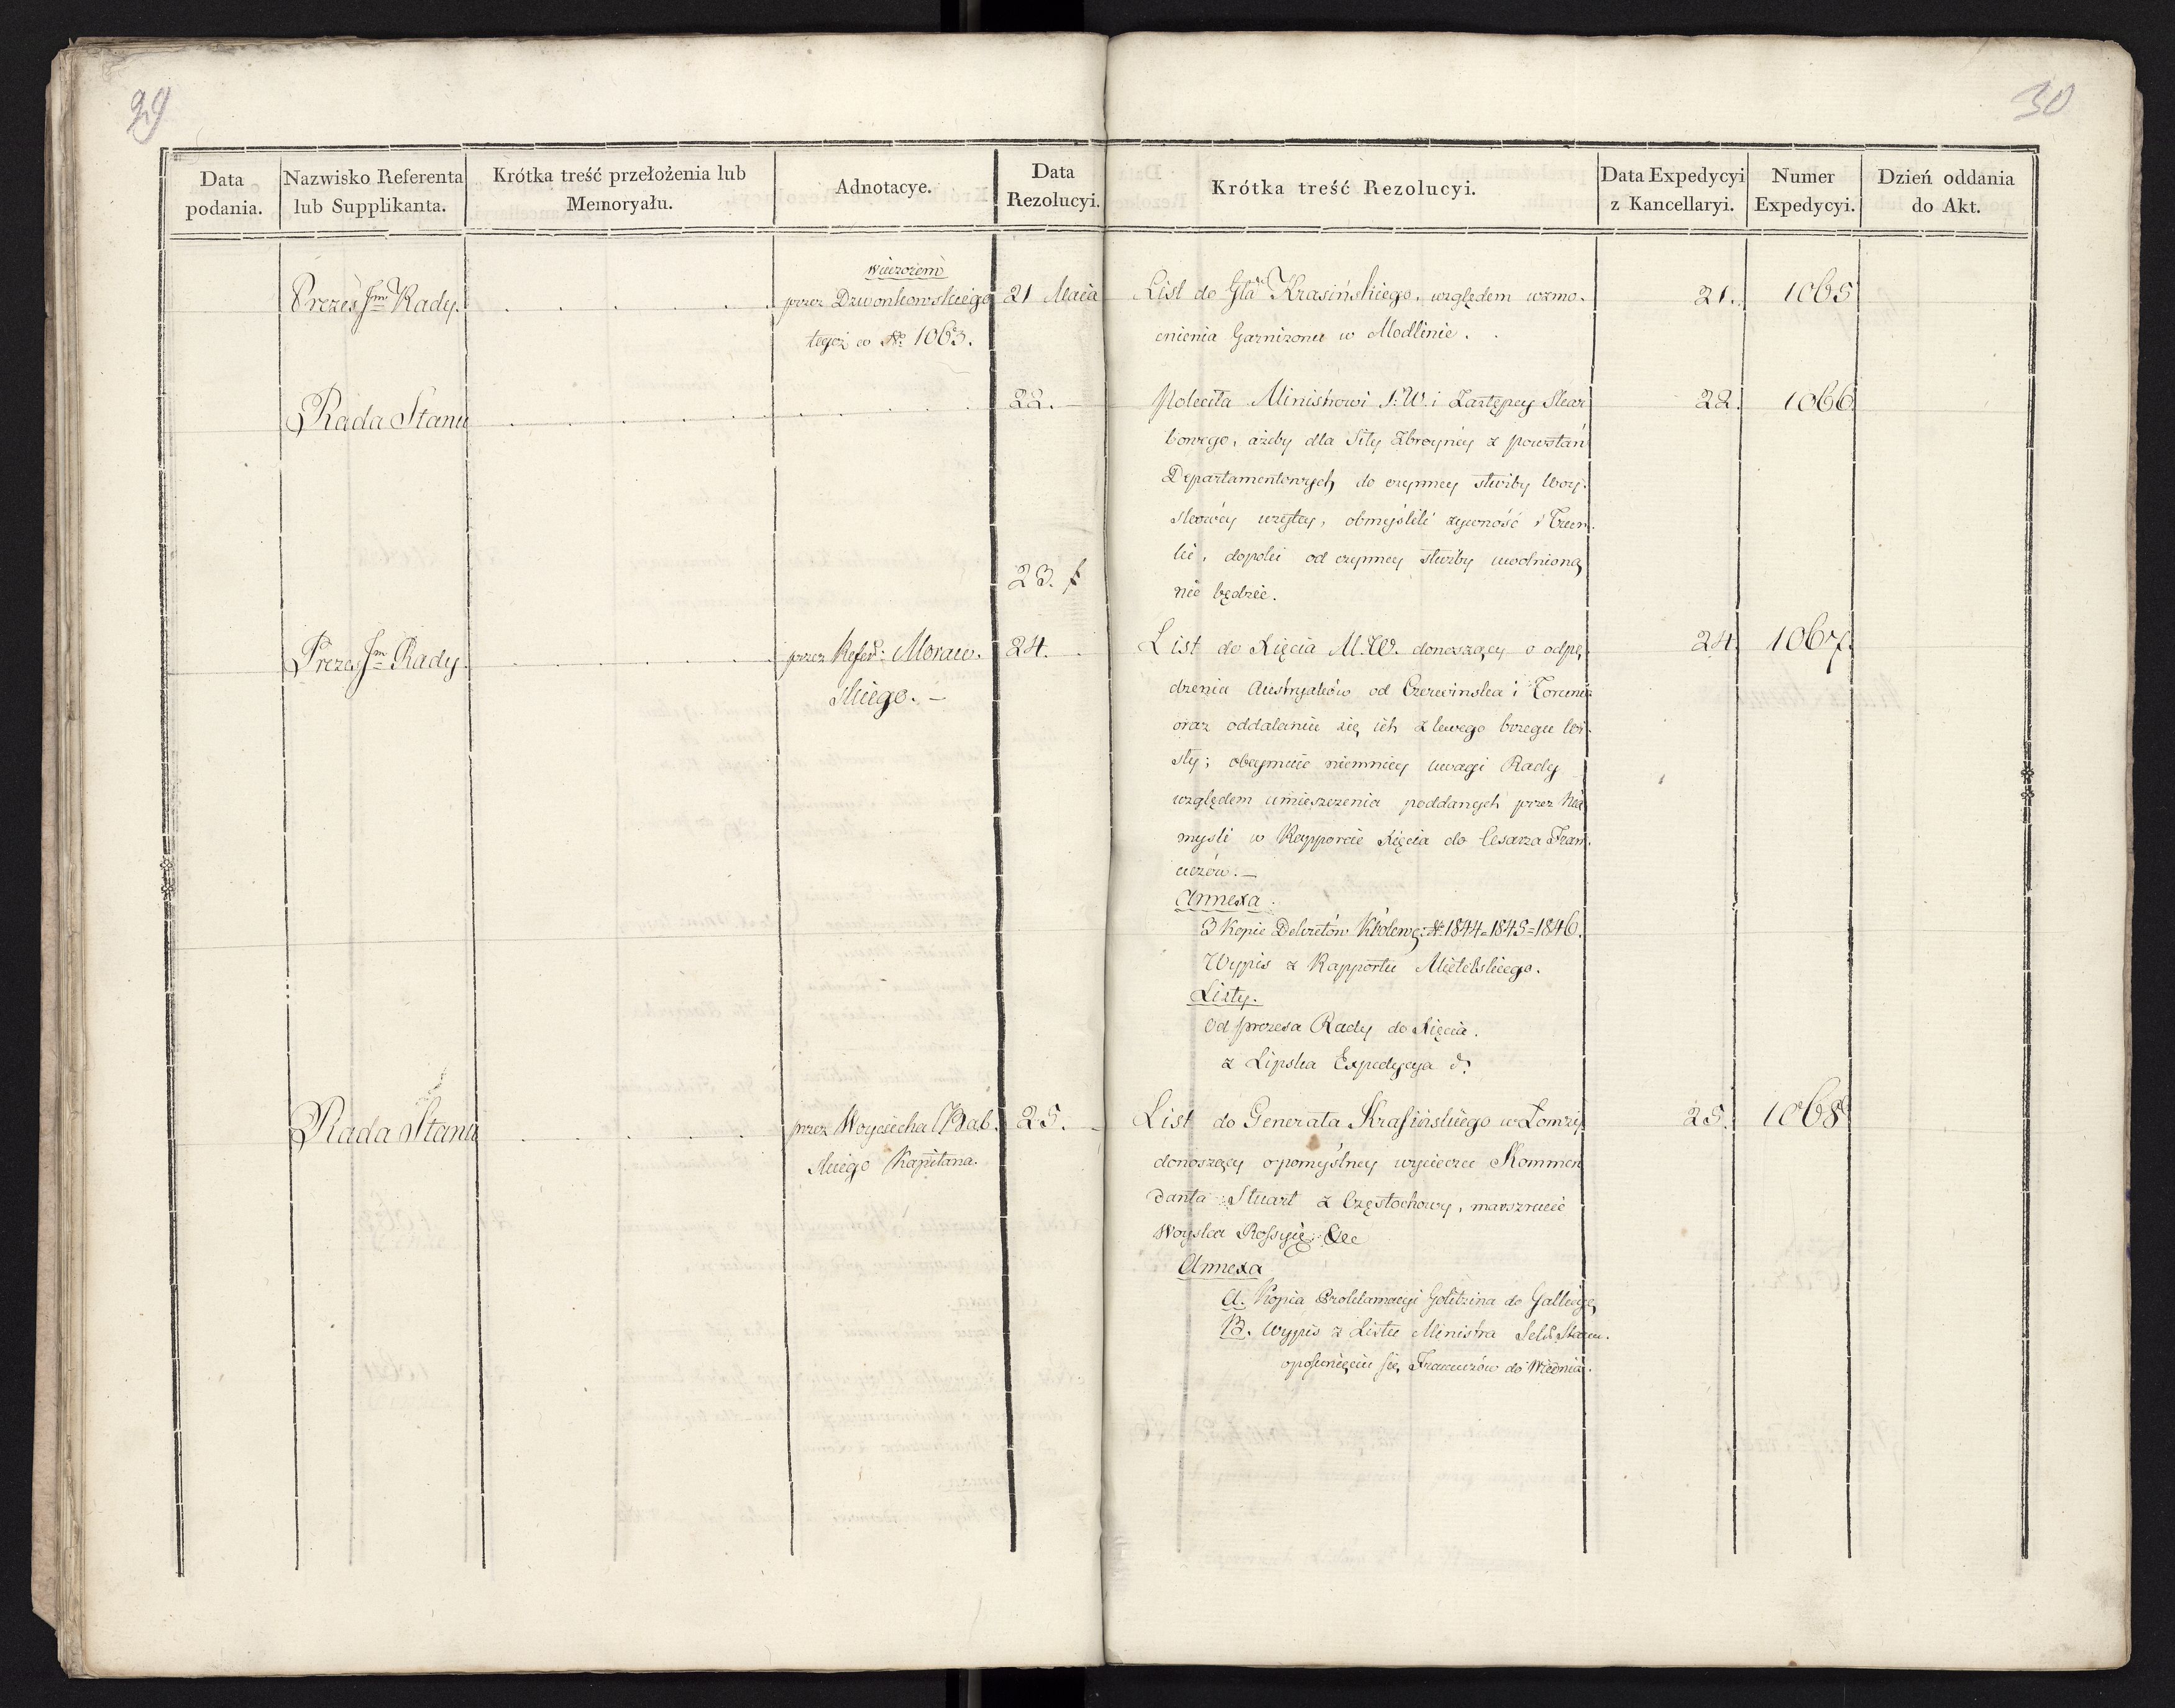 29
30
Data podania.
Nazwisko Referenta lub Supplikanta.
Krótka treść przełożenia lub Memoryału.
Adnotacye.
Data Rezolucyi.
Krótka treść Rezolucyi.
Data Expedycyi z Kancellaryi.
Numer Expedycyi.
Dzień oddania do Akt.
Prezes Rady.
wieczorem
przez Dzwonkowskiego
tegoż co No. 1063.
21 Maia
List do Gła Krasińskiego, względem wzmo-
cnienia Garnizonu w Modlinie.
21.
1065
Rada Stanu
22.
Poleciła Ministrowi S:W. i Zastępcy Skar
bowego, ażeby dla Siły Zbroyney z powstań
Departamentowych do czynney służby woy-
skowéy wziętey, obmyślili żywność i Trun-
ki, dopóki od czynney służby uwolnioną
nie będzie.
22.
1066
23.
Prezes Rady.
przez Refer: Moraw-
skiego. —
24.
List do Xięcia M.W. donoszący o odpę-
dzeniu Austryaków od Czerwinska i Torunia
oraz oddalaniu się ich z lewego brzegu Wi-
sły; obeymuie niemniey uwagi Rady
względem umieszczenia poddanych przez Nią
myśli w Rapporcie Xięcia do Cesarza Fran-
cuzów. —
Annexa.
3 Kopie Dekretów Królews: No 1844 = 1845 = 1846.
Wypis z Rapportu Mielelskiego.
Listy.
Od prezesa Rady do Xięcia.
z Lipska Expedycya
24.
1067.
Rada Stanu
przez Woyciecha Bab-
skiego Kapitana.
25.
List do Generała Krasińskiego w Łomży
donoszący o pomyślney wycieczce Kommen
danta Stuart z Częstochowy, marszrucie
Woyska Rossyi: &c
Annexa
A. Kopia Proklamacyi Golitzina do Gallicyi
B. Wypis z Listu Ministra Sekr. Stanu.
o posunięciu się Francuzów do Wiednia.
25.
1068